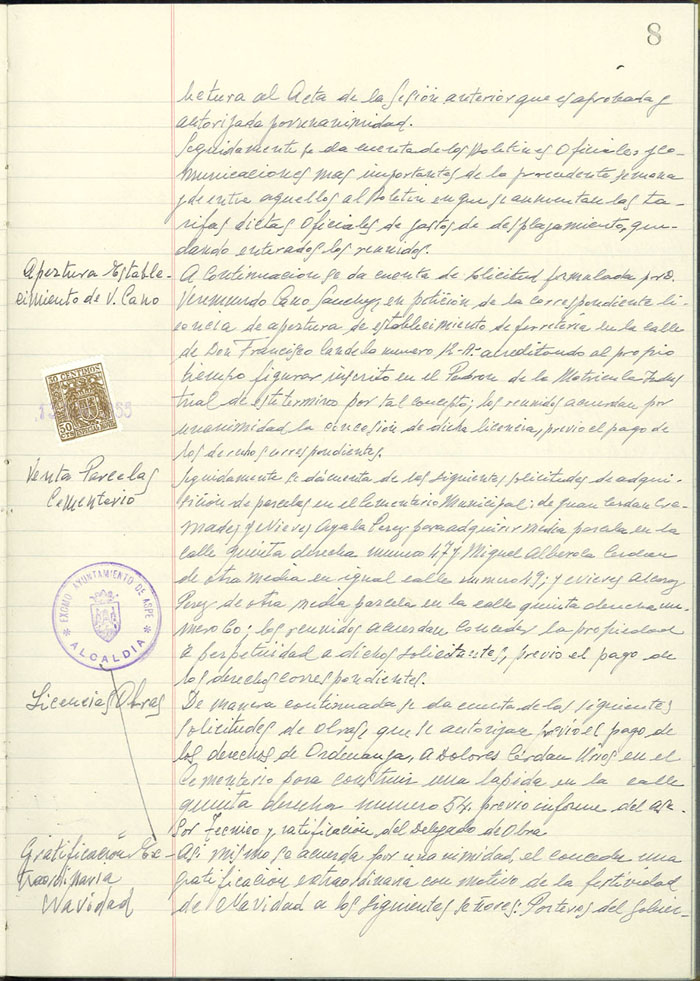 8
lectura al Acta de la Sesión anterior que es aprobada y
autorizada por unanimidad.
Seguidamente se da cuenta de los Boletines Oficiales y Co-
municaciones mas importantes de la precedente semana
y de entre aquellos al Boletin en que se aumentan las ta-
rifas dietas Oficiales de gastos de desplazamiento, que-
dando enterados los reunidos.
Apertura Estable-
cimiento de V. Cano
A Continuacion se da cuenta de solicitud formulada por D.
Veremundo Cano Sanchez, en petición de la correspondiente li-
cencia de apertura de establecimiento de ferreteria en la calle
de Don Francisco Candela numero 12-A. acreditando al propio
tiempo figurar inscrito en el Padron de la Matricula Indus
trial de este termino por tal concepto; los reunidos acuerdan por
unanimidad la concesión de dicha licencia, previo el pago de
los derechos correspondientes.
50 CENTIMOS
50
Venta Parcelas
Cementerio
Seguidamente se da cuenta de las siguientes solicitudes de adqui-
sición de parcelas en el Cementerio Municipal: de Juan Cerdan Cre-
mades y Nieves Ayala Perez para adquirir media parcela en la
calle quinta derecha numero 47 y Miguel Alberola Cerdan
de otra media en igual calle numero 49; y Nieves Alcaraz
Perez de otra media parcela en la calle quinta derecha nu-
mero 60; los reunidos acuerdan conceder la propiedad
a perpetuidad a dichos solicitantes, previo el pago de
los derechos correspondientes.
EXCMO AYUNTAMIENTO DE ASPE
ALCALDIA
Licencias Obras
De manera continuada se da cuenta de las siguientes
solicitudes de obras, que se autorizan previo el pago de
los derechos de Ordenanza, a Dolores Cerdan Urios en el
Cementerio para construir una lapida en la calle
quinta derecha numero 54, previo informe del ase-
sor Tecnico y ratificación del Delegado de Obra
Gratificación Ex-
traordinaria
Navidad
Asi mismo se acuerda por unanimidad, el conceder una
gratificacion extraordinaria con motivo de la festividad
de Navidad a los siguientes señores: Porteros del Gobier-